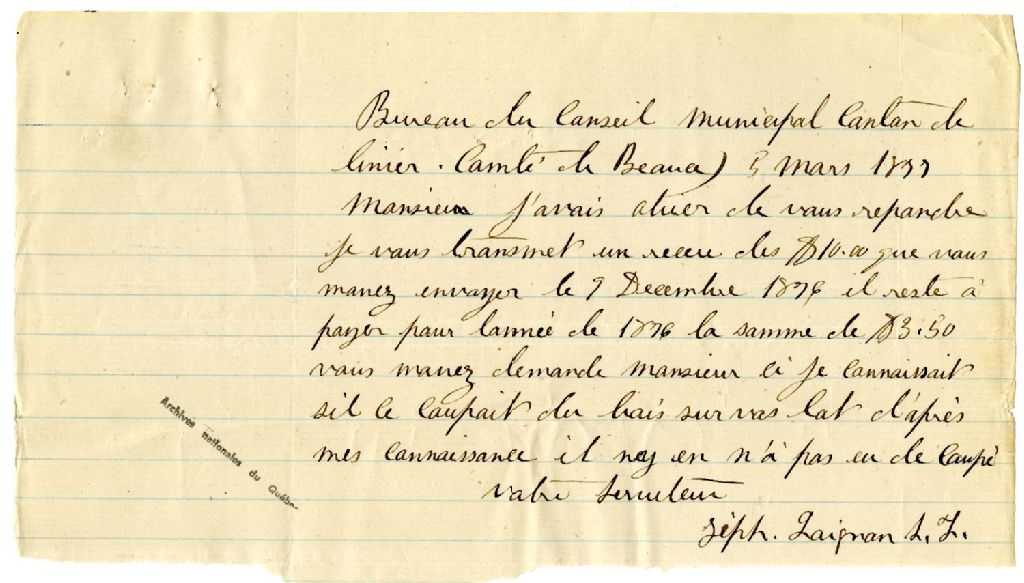 Bureau du Conseil Municipal Canton de
linier. Comté de Beauce) 5 Mars 1877
Monsieur J'avais atuer de vous repondre
je vous transmet un receu des $10.00 que vous
mavez envoyer le 9 Decembre 1876 il reste à
payer pour lannée de 1876 la somme de $3.50
vous mavez demande monsieur ci je connaissait
sil ce coupait du bois sur vos lot d'après
mes connaissance il ney en n'à pas eu de coupé
votre serviteur
Archives nationales du Québec